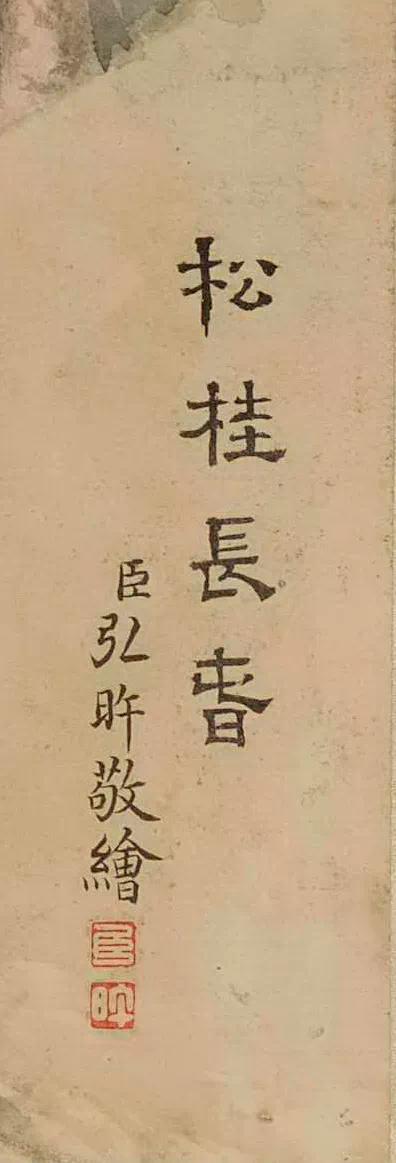 松桂長春
臣弘旿敬繪
臣
旿